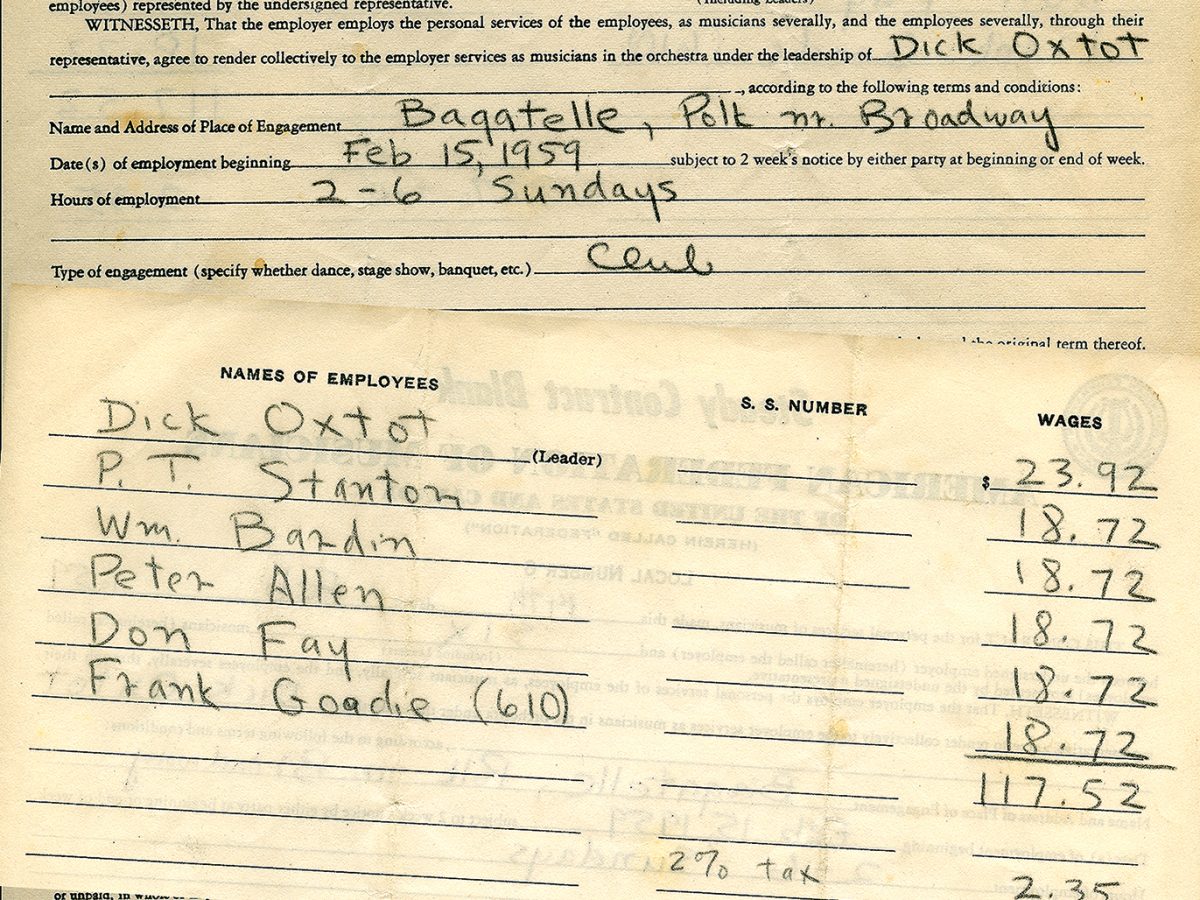 employees) represented by the undersigned representative. (Including Leaders)
WITNESSETH, That the employer employs the personal services of the employees, as musicians severally, and the employees severally, through their
representative, agree to render collectively to the employer services as musicians in the orchestra under the leadership of Dick Oxtot
, according to the following terms and conditions:
Name and Address of Place of Engagement Bagatelle, Polk nr. Broadway
Date(s) of employment beginning Feb 15, 1959 subject to 2 week's notice by either party at beginning or end of week.
Hours of employment 2-6 Sundays
Type of engagement (specify whether dance, stage show, banquet, etc.) Club
the original term thereof.
NAMES OF EMPLOYEES S. S. NUMBER WAGES
Dick Oxtot (Leader) $ 23.92
P. T. Stanton 18.72
Wm. Bardin 18.72
Peter Allen 18.72
Don Fay 18.72
Frank Goadie (610) 18.72
117.52
2% tax 2.35
or unpaid, in